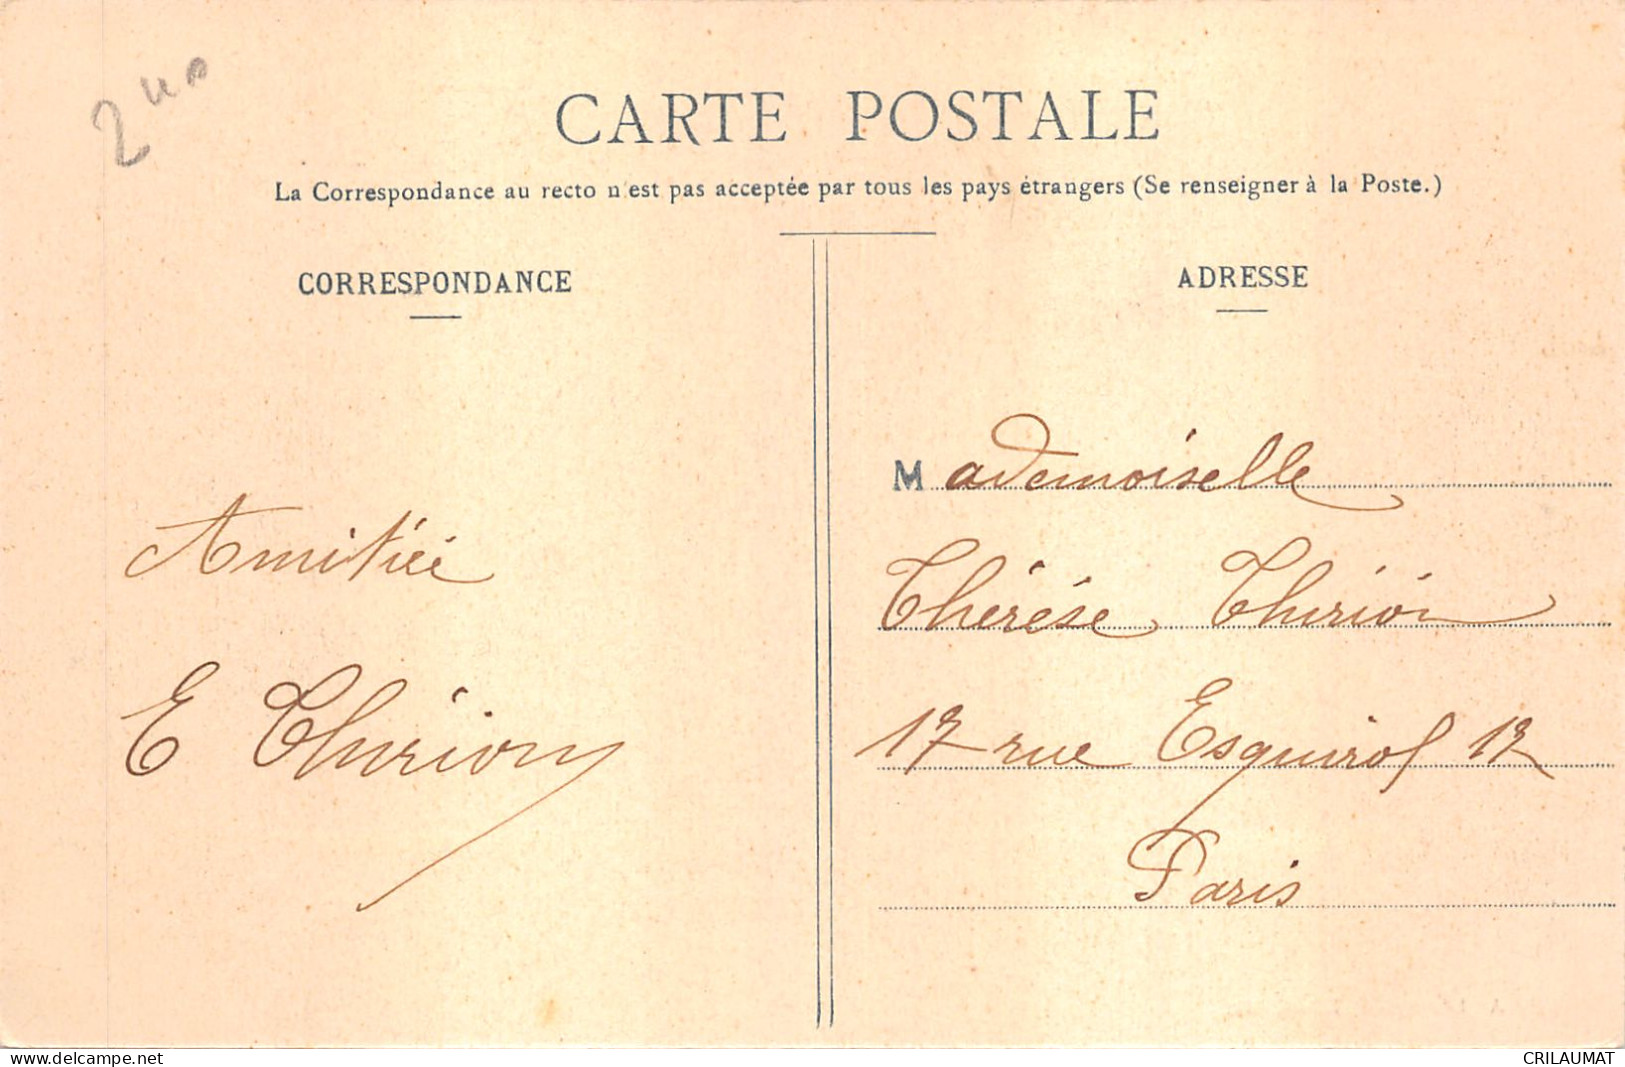 CARTE POSTALE
La Correspondance au recto n'est pas acceptée par tous les pays étrangers (Se renseigner à la Poste.)
CORRESPONDANCE
Amitié
E Thirion
ADRESSE
Mademoiselle
Thérèse Thirion
17 rue Esquirol 17
Paris
www.delcampe.net
CRILAUMAT